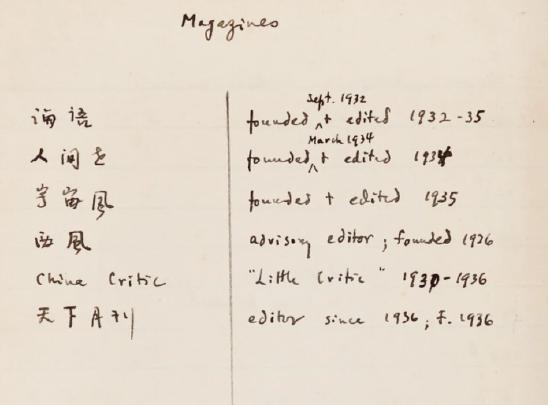 Magazines
論語 founded ^ & edited 1932-35
Sept. 1932
人间世 founded ^ & edited 1934
March 1934
宇宙風 founded & edited 1935
西風 advisory editor; founded 1936
China Critic "Little Critic" 1930-1936
天下月刊 editor since 1936; F. 1936